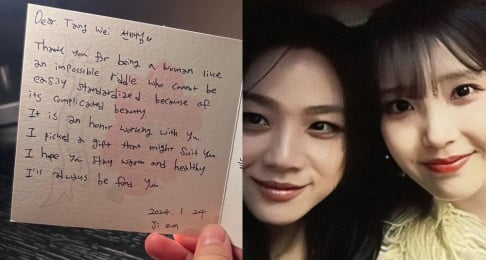 Dear. Tang Wei 선배님
Thank you for being a woman like
an impossible riddle who cannot be
easily standardized because of
its complicated beauty
It is an honor working with you.
I picked a gift that might suit you
I hope you stay warm and healthy
I'll always be fond you.
2024. 1. 24
Ji eun